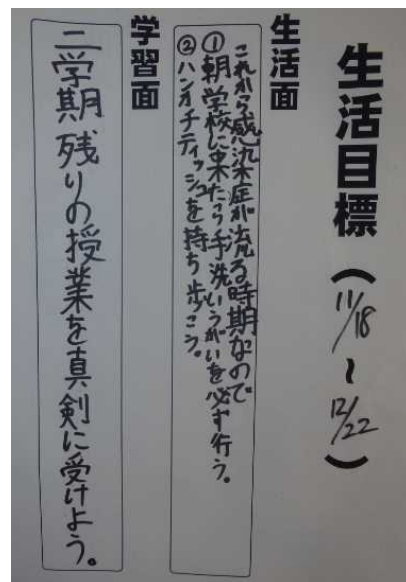 生活目標（11/18～12/22）
生活面
これから感染症が流る時期なので
①朝学校に来たら手洗いうがいを必ず行う。
②ハンカチティッシュを持ち歩こう。
学習面
二学期残りの授業を真剣に受けよう。